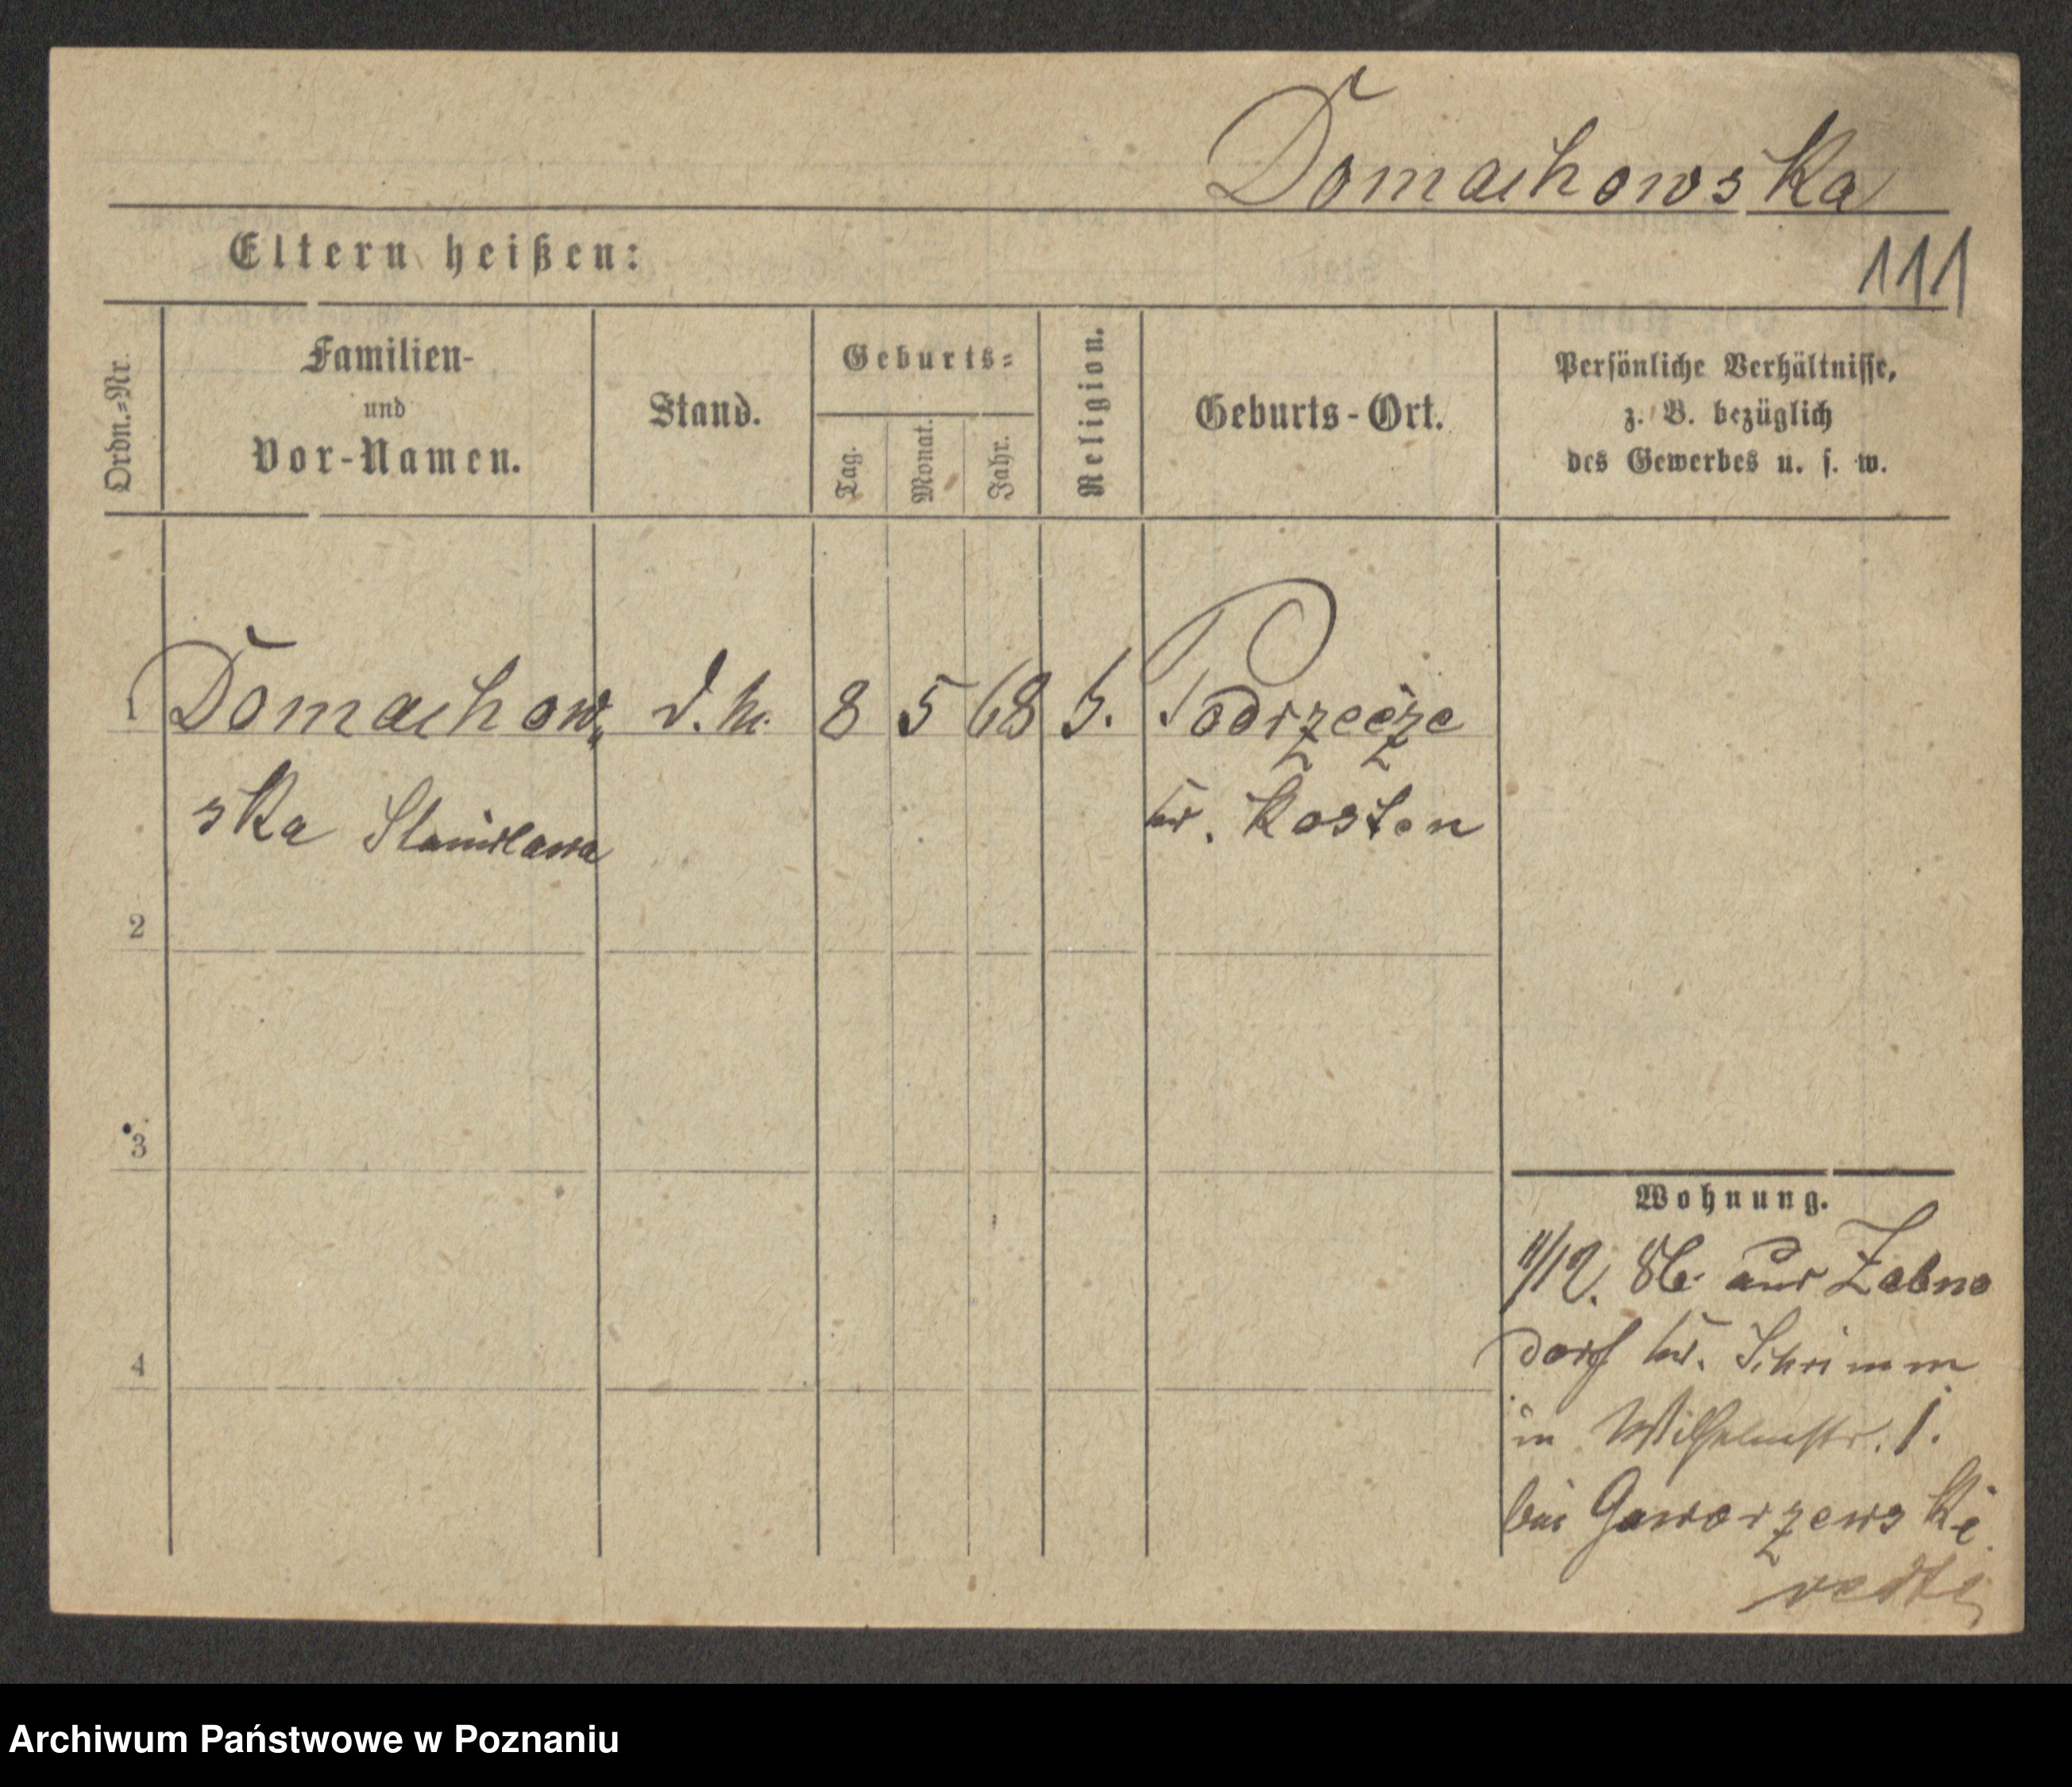 Domachowska
111
Eltern heißen:
Ordn.=Nr.
Familien-
und
Vor-Namen.
Stand.
Geburts=
Tag.
Monat.
Jahr.
Religion.
Geburts-Ort.
Persönliche Verhältnisse,
z. B. bezüglich
des Gewerbes u. s. w.
1 Domachow„ 8 5 68 Podrzecze
ska Stanislawa Kr. Kosten
2
3
4
Wohnung.
11/12. 86. aus Zabno
dorf Kr. Schrimm
in Wilhelmstr. 1.
bei Gaworzewski
Archiwum Państwowe w Poznaniu